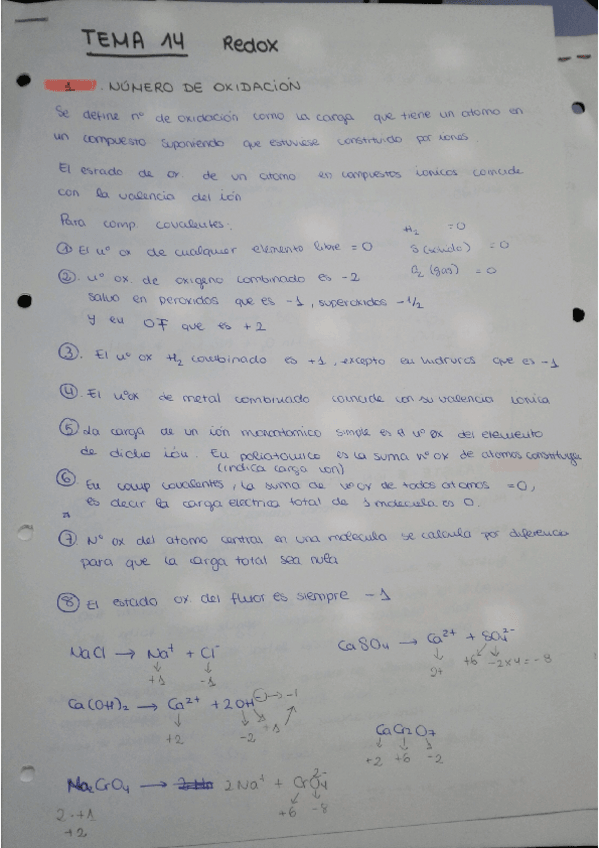 TEMA 14 Redox
1. NÚMERO DE OXIDACIÓN
Se define nº de oxidación como la carga que tiene un átomo en
un compuesto suponiendo que estuviese constituido por iones.
El estado de ox de un átomo en compuestos ionicos coincide
con la valencia del ión
Para comp covalentes:
H2 = 0
① El nº ox de cualquier elemento libre = 0
S (solido) = 0
② nº ox. de oxigeno combinado es -2
O2 (gas) = 0
salvo en peroxidos que es -1, superoxidos -1/2
y en OF que es +2
③. El nº ox H2 combinado es +1, excepto en hidruros que es -1
④. El nº ox de metal combinado coincide con su valencia ionica
⑤ La carga de un ión monoatomico simple es el nº ox del elemento
de dicho ión. En poliatomico es la suma nº ox de atomos constituyen
(indica carga ion)
⑥ En comp covalentes, la suma de nº ox de todos atomos = 0,
es decir la carga electrica total de 1 molecula es 0.
⑦. Nº ox del atomo central en una molecula se calcula por diferencia
para que la carga total sea nula
⑧ El estado ox. del fluor es siempre -1
NaCl → Na+ + Cl-
+1 -1
CaSO4 → Ca2+ + SO4 2-
2+ +6 -2x4 = -8
Ca(OH)2 → Ca2+ + 2OH- → -1
+2 -2 +1
CaCr2O7
+2 +6 -2
Na2CrO4 → 2Na+ + CrO4 2-
+6 -8
2·+1
+2